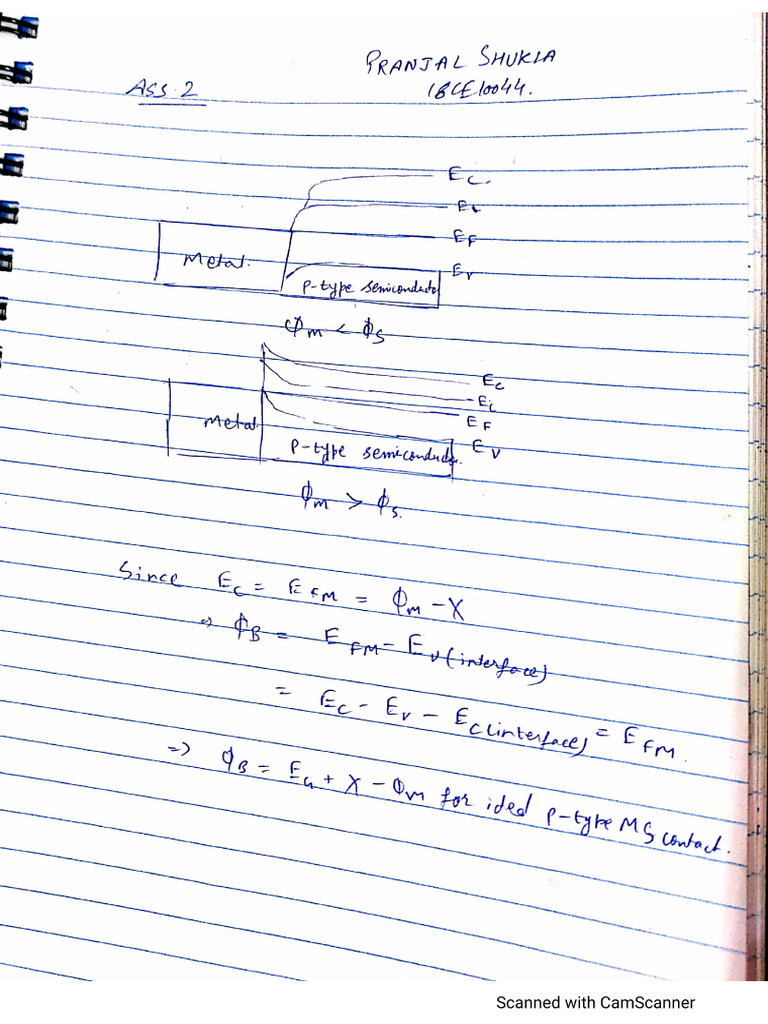 PRANJAL SHUKLA
ASS. 2
18CE10044.
Ec.
Ei
EF
Metal.
Ev
P-type semiconducto
ϕm < ϕs
Ec
Ei
EF
Metal.
Ev
P-type semiconducto.
ϕm > ϕs.
Since Ec = EFM = ϕm - X
⇒ ϕB = EFM - Ev(interface)
= Ec - Ev - Ec(interface) = EFM.
⇒ ϕB = EG + X - ϕM for ideal P-type MS contact.
Scanned with CamScanner